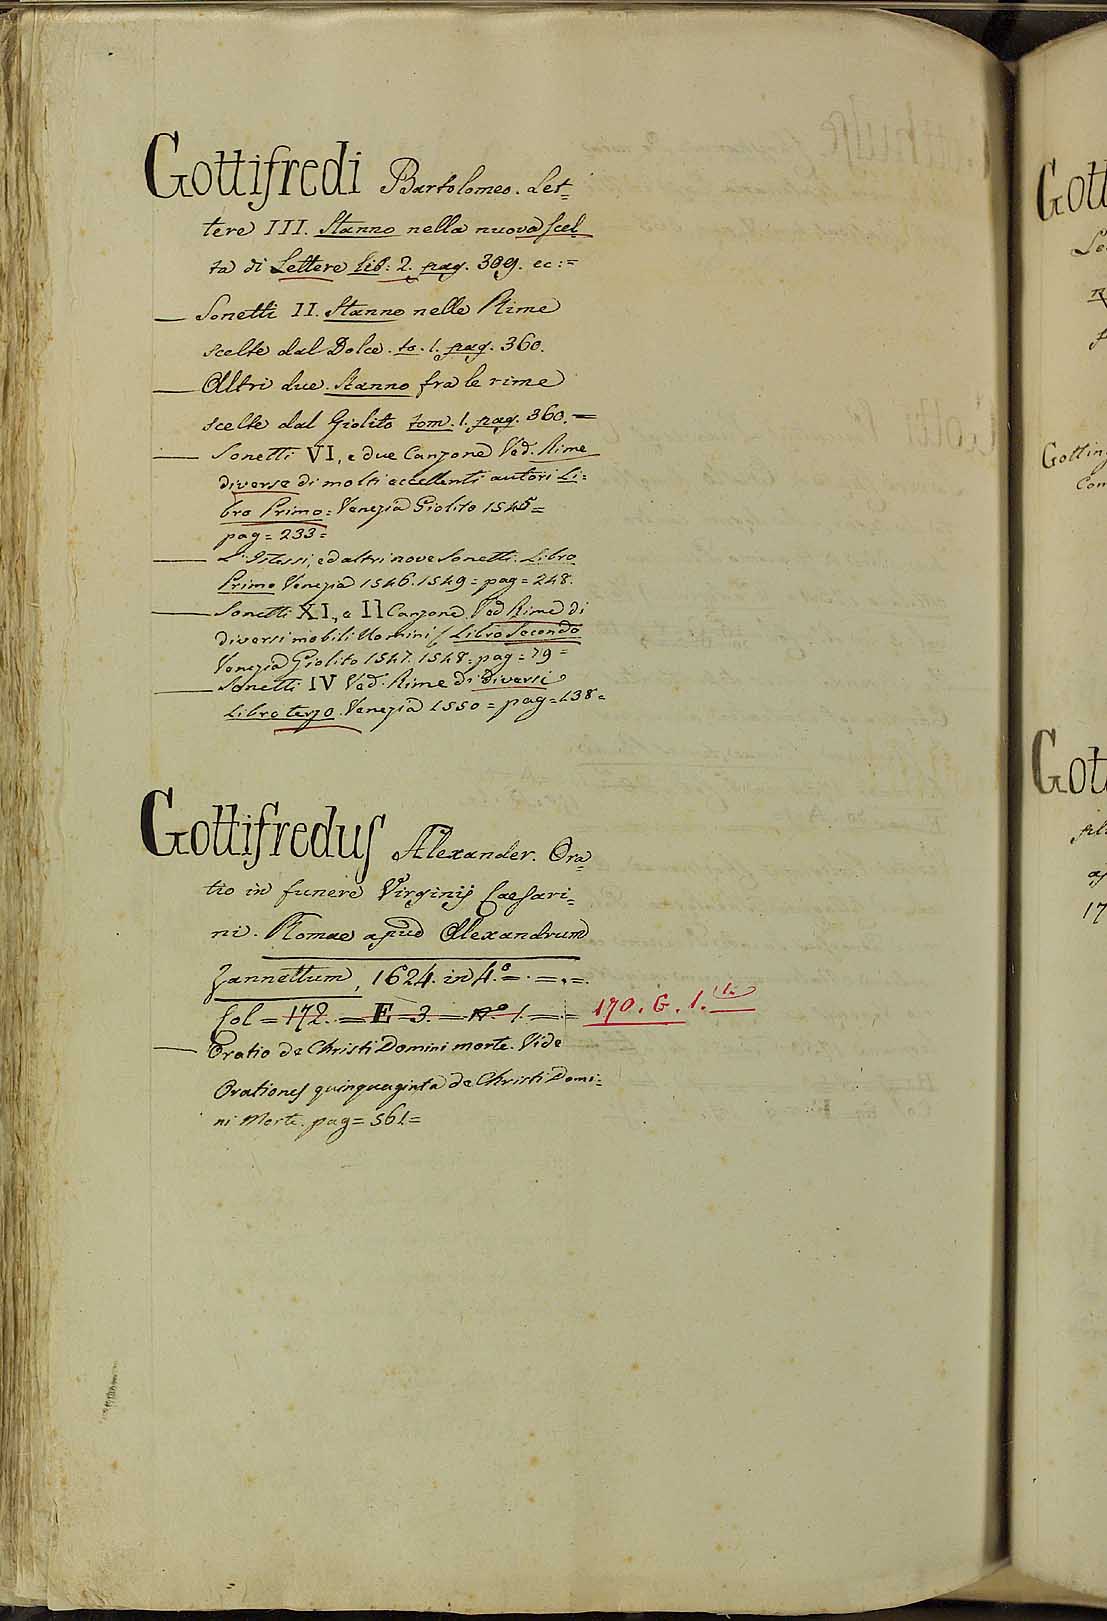 Gottifredi Bartolomeo. Let=
tere III. Stanno nella nuova Scel
ta di Lettere lib: 2. pag. 309. ec:=
— Sonetti II. Stanno nelle Rime
scelte dal Dolce. to. 1. pag. 360.
— Altri due. Stanno fra le rime
scelte dal Giolito tom. 1. pag. 360.=
— Sonetti VI, e due Canzone Ved. Rime
diverse di molti eccellenti autori Li=
bro Primo= Venezia Giolito 1545=
pag= 233=
— L'Istessi, ed altri nove Sonetti. Libro
Primo Venezia 1546. 1549= pag= 248.
— Sonetti XI, e II Canzone. Ved Rime di
diversi nobili Uomini / Libro Secondo
Venezia Giolito 1547. 1548= pag= 79=
— Sonetti IV Ved. Rime di Diversi
Libro terzo. Venezia 1550= pag= 138=
Gottifredus Alexander. Ora=
tio in funere Virginij Caesari=
ni. Romae apud Alexandrum
Zannettum, 1624. in 4.°=.=.=.
Col= 172.= E= 3.= N° 1.=.= 170. G. 1.
— Oratio de Christi Domini morte. Vide
Orationes quinquaginta de Christi Domi=
ni Morte. pag= 561=
Gott
Gotting
Com
Got
17